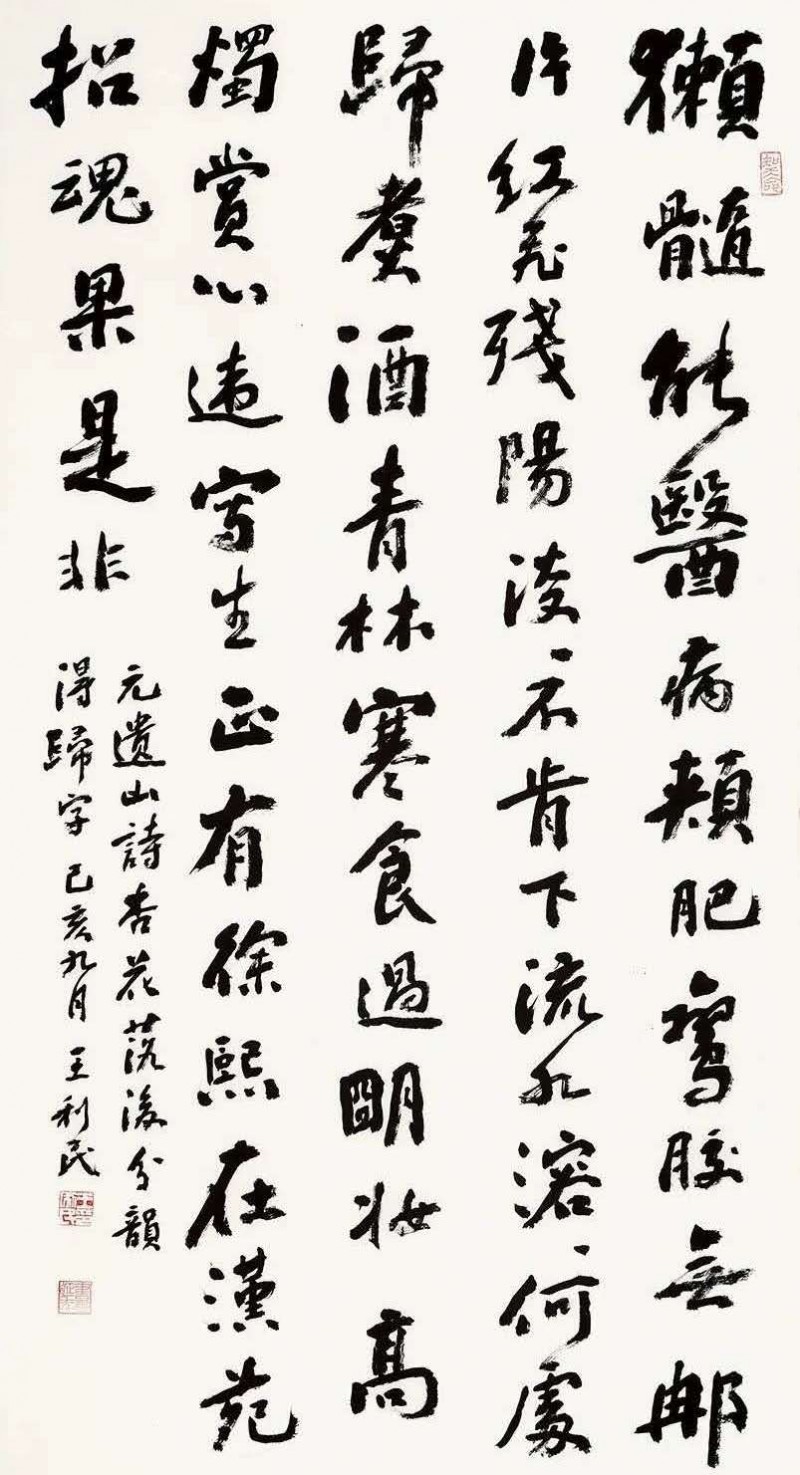 獺髓能醫病頰肥鸞膠無那
片紅飛殘陽淡〻不肯下流水溶〻何處
歸煑酒青林寒食過明妝高
燭賞心違寫生正有徐熙在漢苑
招魂果是非
元遺山詩杏花落後分韻
得歸字己亥九月王利民